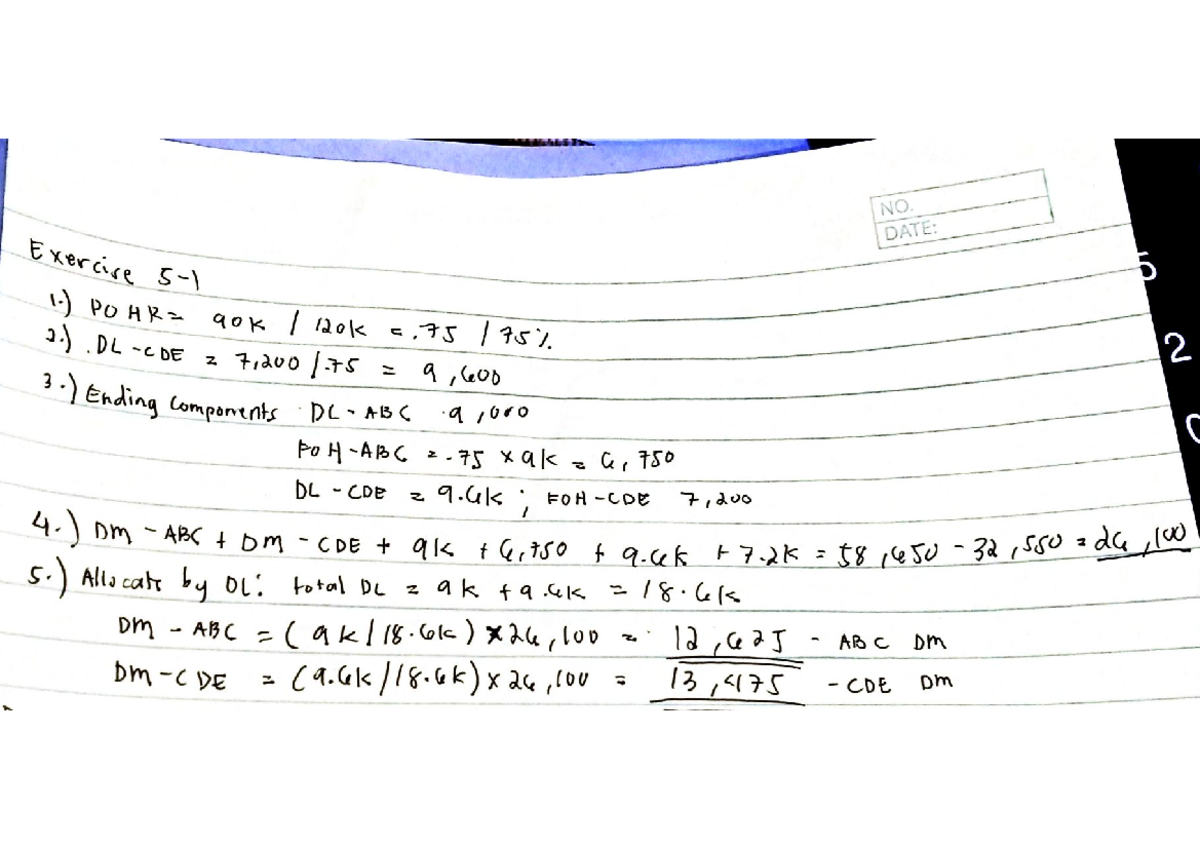 NO.
DATE:
Exercise 5-1
1.) POHR = 90k / 120k = .75 / 75%
2.) DL-CDE = 7,200 / .75 = 9,600
3.) Ending Components DL-ABC 9,000
FOH-ABC = .75 x 9k = 6,750
DL-CDE = 9.6k ; FOH-CDE 7,200
4.) DM-ABC + DM-CDE + 9k + 6,750 + 9.6k + 7.2k = 58,650 - 32,550 = 26,100
5.) Allocate by DL: total DL = 9k + 9.6k = 18.6k
DM-ABC = (9k/18.6k) x 26,100 = 12,625 - ABC DM
DM-CDE = (9.6k/18.6k) x 26,100 = 13,475 - CDE DM
5
2